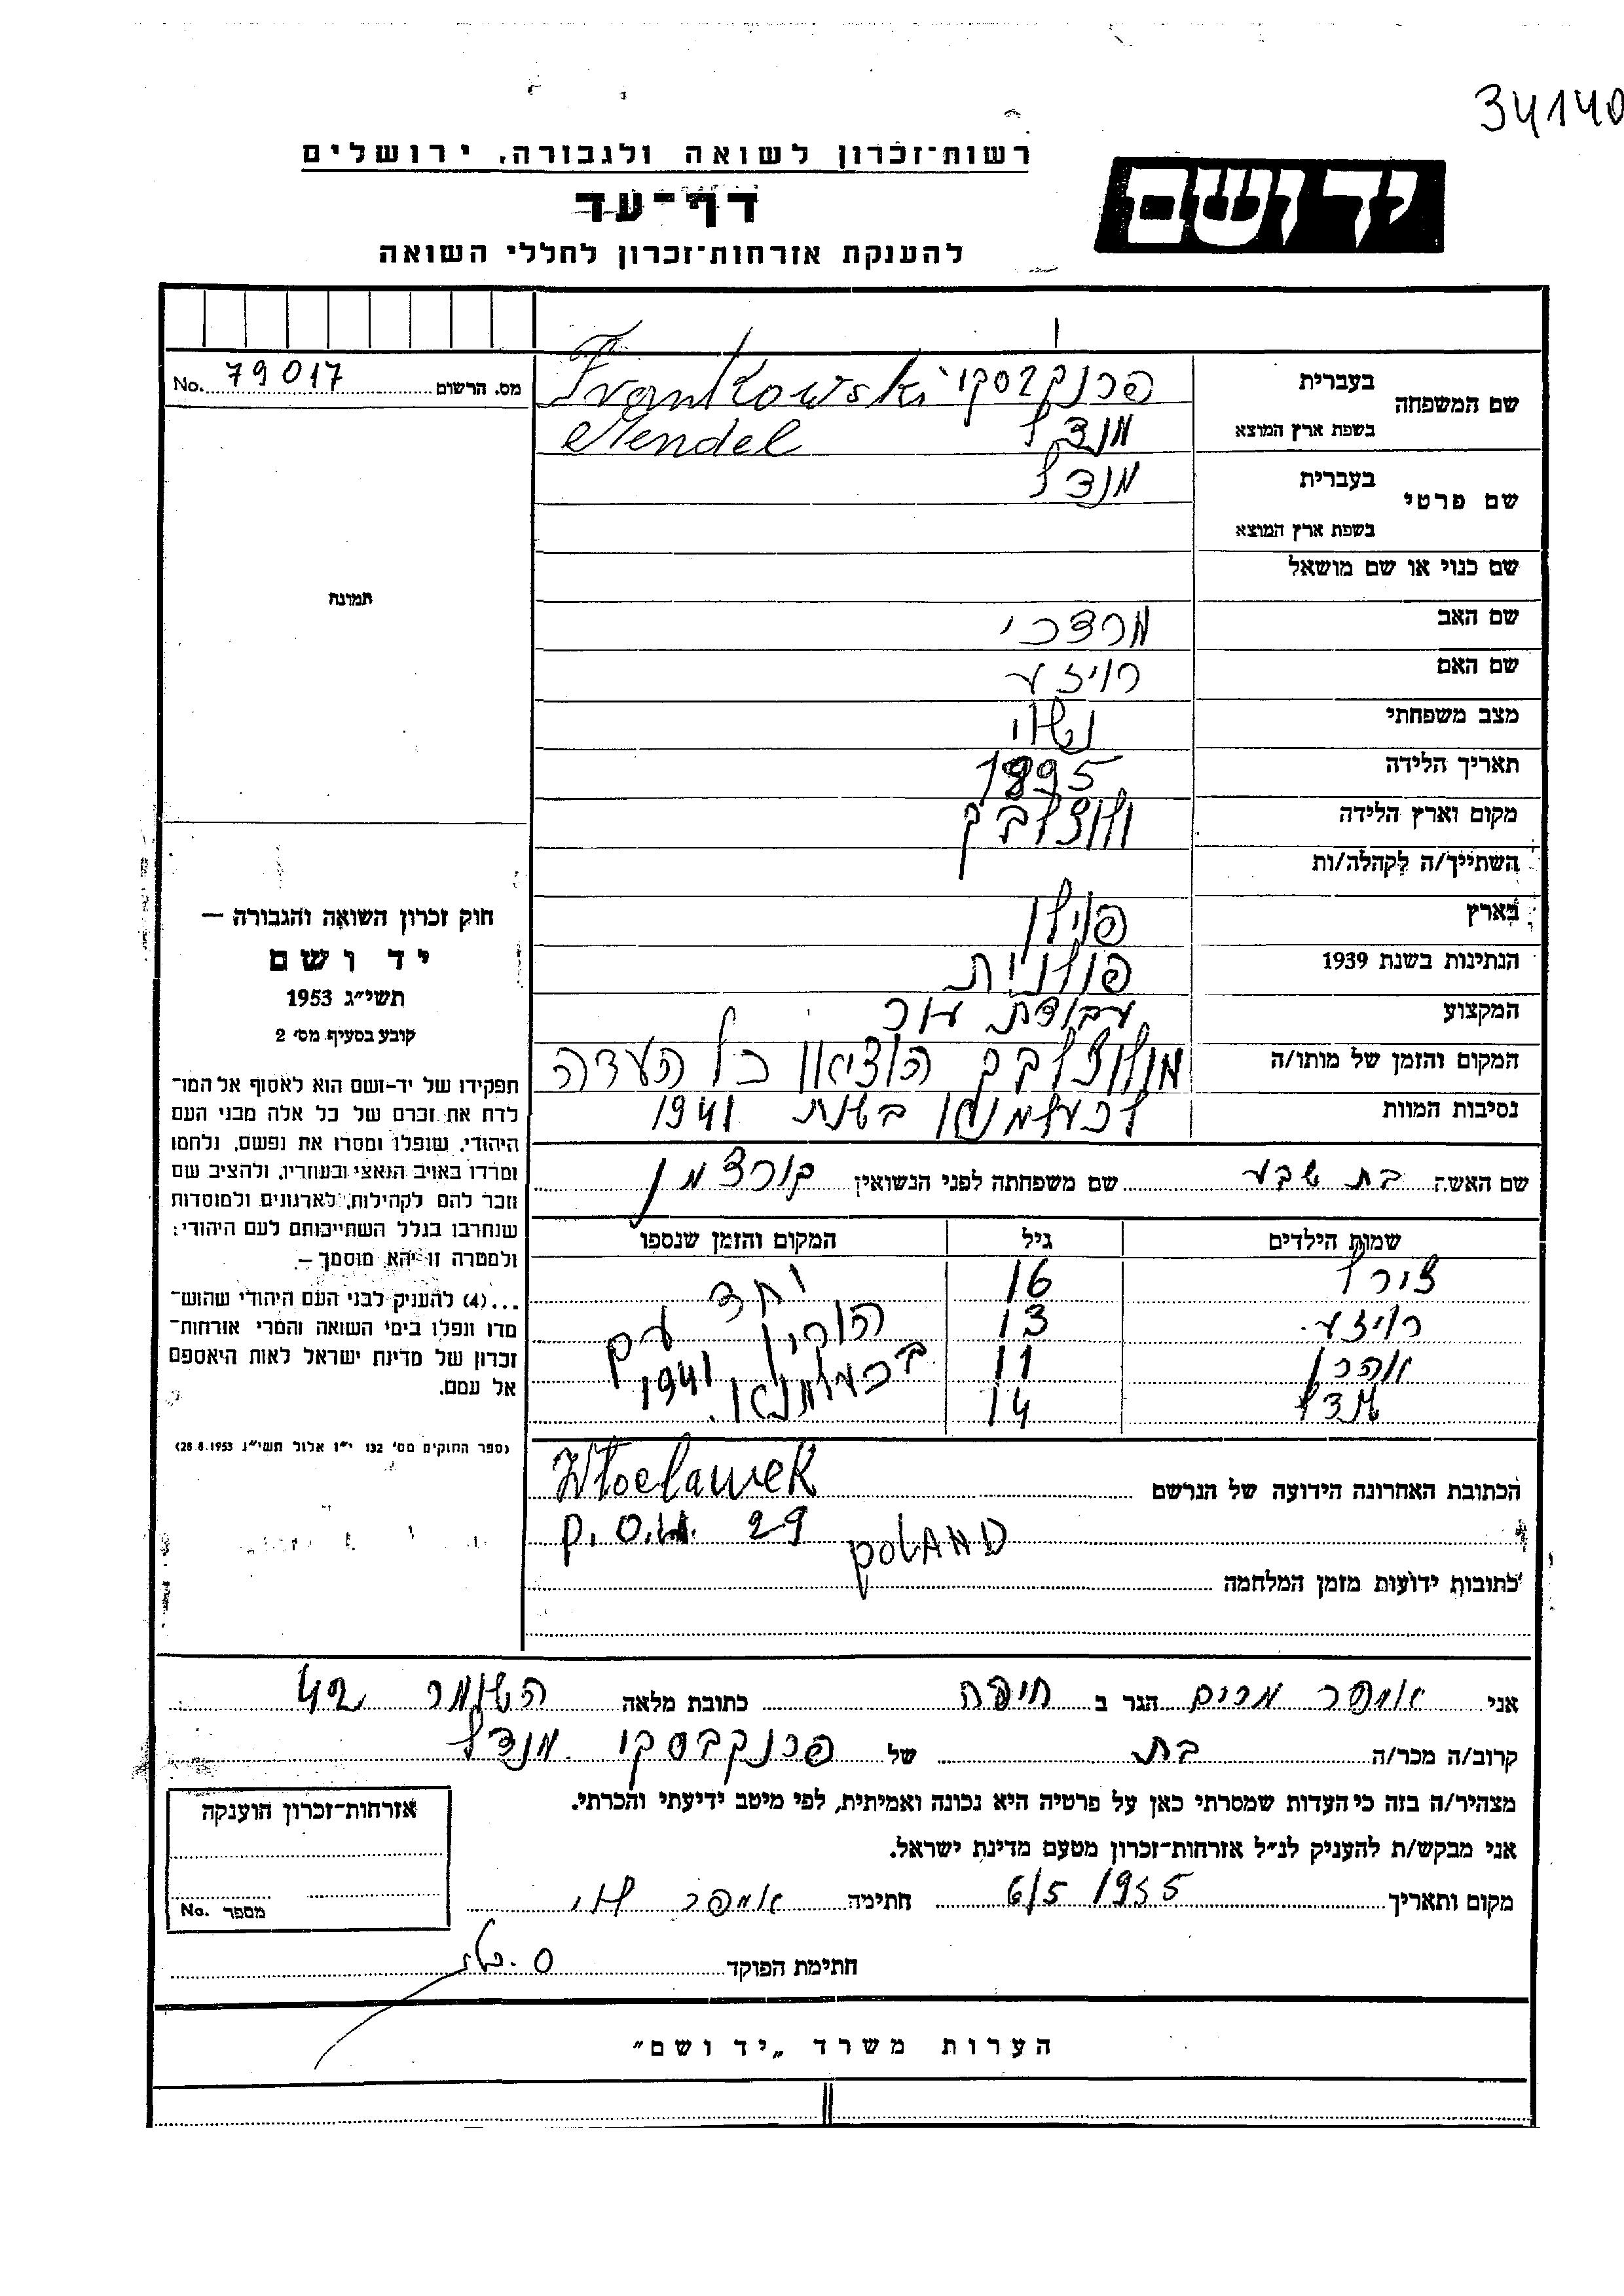 34140
יד ושם
רשות־זכרון לשואה ולגבורה, ירושלים
דף־עד
להענקת אזרחות־זכרון לחללי השואה
מס. הרשום 79017 No.
שם המשפחה
בעברית פרנקבסקי Frankowski
בשפת ארץ המוצא מנדל Mendel
שם פרטי
בעברית מנדל
בשפת ארץ המוצא
שם כנוי או שם מושאל
שם האב מרדכי
שם האם רויזע
מצב משפחתי נשוי
תאריך הלידה 1895
מקום וארץ הלידה ולוצלבק
השתייך/ה לקהלה/ות
בארץ פוילן
הנתינות בשנת 1939 פולנית
המקצוע עבודת עור
המקום והזמן של מותו/ה מולוצלבק הוציאו כל העדה
נסיבות המוות לכעלמנאו בשנת 1941
שם האשה בת שבע שם משפחתה לפני הנשואין קורצמן
שמות הילדים גיל המקום והזמן שנספו
16 יחד עם
רויזע 13 הורין
אהרן 11 1941
14
הכתובת האחרונה הידועה של הנרשם Włocławek
P.O.W. 29 POLAND
כתובות ידועות מזמן המלחמה
תמונה
חוק זכרון השואה והגבורה —
יד ושם
תשי״ג 1953
קובע בסעיף מס׳ 2
תפקידו של יד־ושם הוא לאסוף אל המו־
לדת את זכרם של כל אלה מבני העם
היהודי, שנפלו ומסרו את נפשם, נלחמו
ומרדו באויב הנאצי ובעוזריו, ולהציב שם
וזכר להם לקהילות, לארגונים ולמוסדות
שנחרבו בגלל השתייכותם לעם היהודי;
ולמטרה זו יהא מוסמך —
...(4) להעניק לבני העם היהודי שהוש־
מדו ונפלו בימי השואה והמרי אזרחות־
זכרון של מדינת ישראל לאות היאספם
אל עמם.
(ספר החוקים מס׳ 132 י״ז אלול תשי״ג 28.8.1953)
אני אמפר מרים הגר ב חיפה כתובת מלאה השומר 42
קרוב/ה מכר/ה בת של פרנקבסקי מנדל
מצהיר/ה בזה כי העדות שמסרתי כאן על פרטיה היא נכונה ואמיתית, לפי מיטב ידיעתי והכרתי.
אני מבקש/ת להעניק לנ״ל אזרחות־זכרון מטעם מדינת ישראל.
מקום ותאריך 6/5 1955 חתימה אמפר
חתימת הפוקד
אזרחות־זכרון הוענקה
מספר No.
הערות משרד „יד ושם״